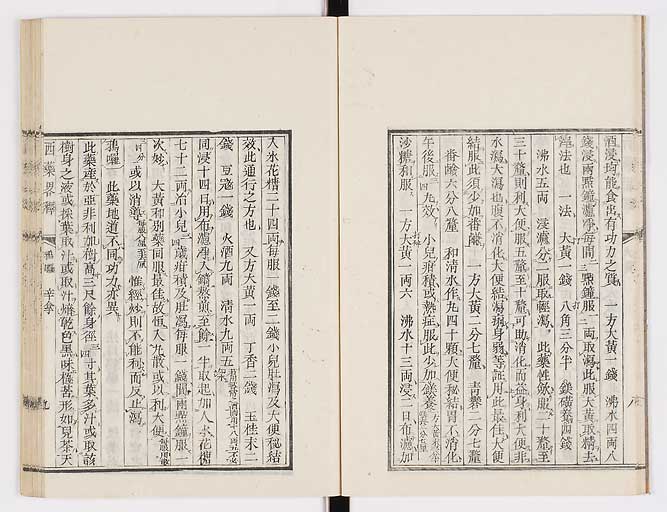 酒浸均能食出有功力之質 一方大黃一錢 沸水四両八
錢浸兩點鐘濾淨每間三點鐘服一二両取瀉此服大黃取精去
滓法也 一法 大黃一錢 八角三分半 鎂磺養四錢
沸水五両 浸濾分二服取輕瀉 此藥性歛服一十釐至
三十釐則利大便服五釐至十釐可助消化而益身利大便非
水瀉大瀉也腹不消化大便結瀉病身弱等症用此最佳大便
結服此須少加番鹼 一方大黃二分七釐 靑礬二分七釐
番鹼六分八釐 和清水作丸四十顆大便秘結胃不消化
午後服四九效 小兒疳積或熱症服此少加鎂養
沙糖和服 一方大黃一両六 沸水十三両浸一日布濾加
入氷花糖二十四両每服一錢至二錢小兒肚瀉及大便秘結
效此通行之方也 又方大黃一両 丁香二錢 玉桂末二
錢 豆蔻一錢 火酒九両 清水九両五
同浸十四日用布濾凈入鍋熬煎至餘一半取起加入氷花糖
七十二両冶小兒三四歲疳積及肚瀉每服一錢間兩點鐘服一
次妙 大黃和別藥同服最佳故恒入丸散或以利大便
或以消導 惟經炒則不能利而反止瀉
鴉囉 此藥地道不同功力亦異
此藥產於亞非利加樹高三尺餘身徑三四寸其葉多汁或取該
樹身之液或採葉取汁或取汁煉乾色黑味極苦形如兒茶天
西藥畧釋 鴉囉 辛孝